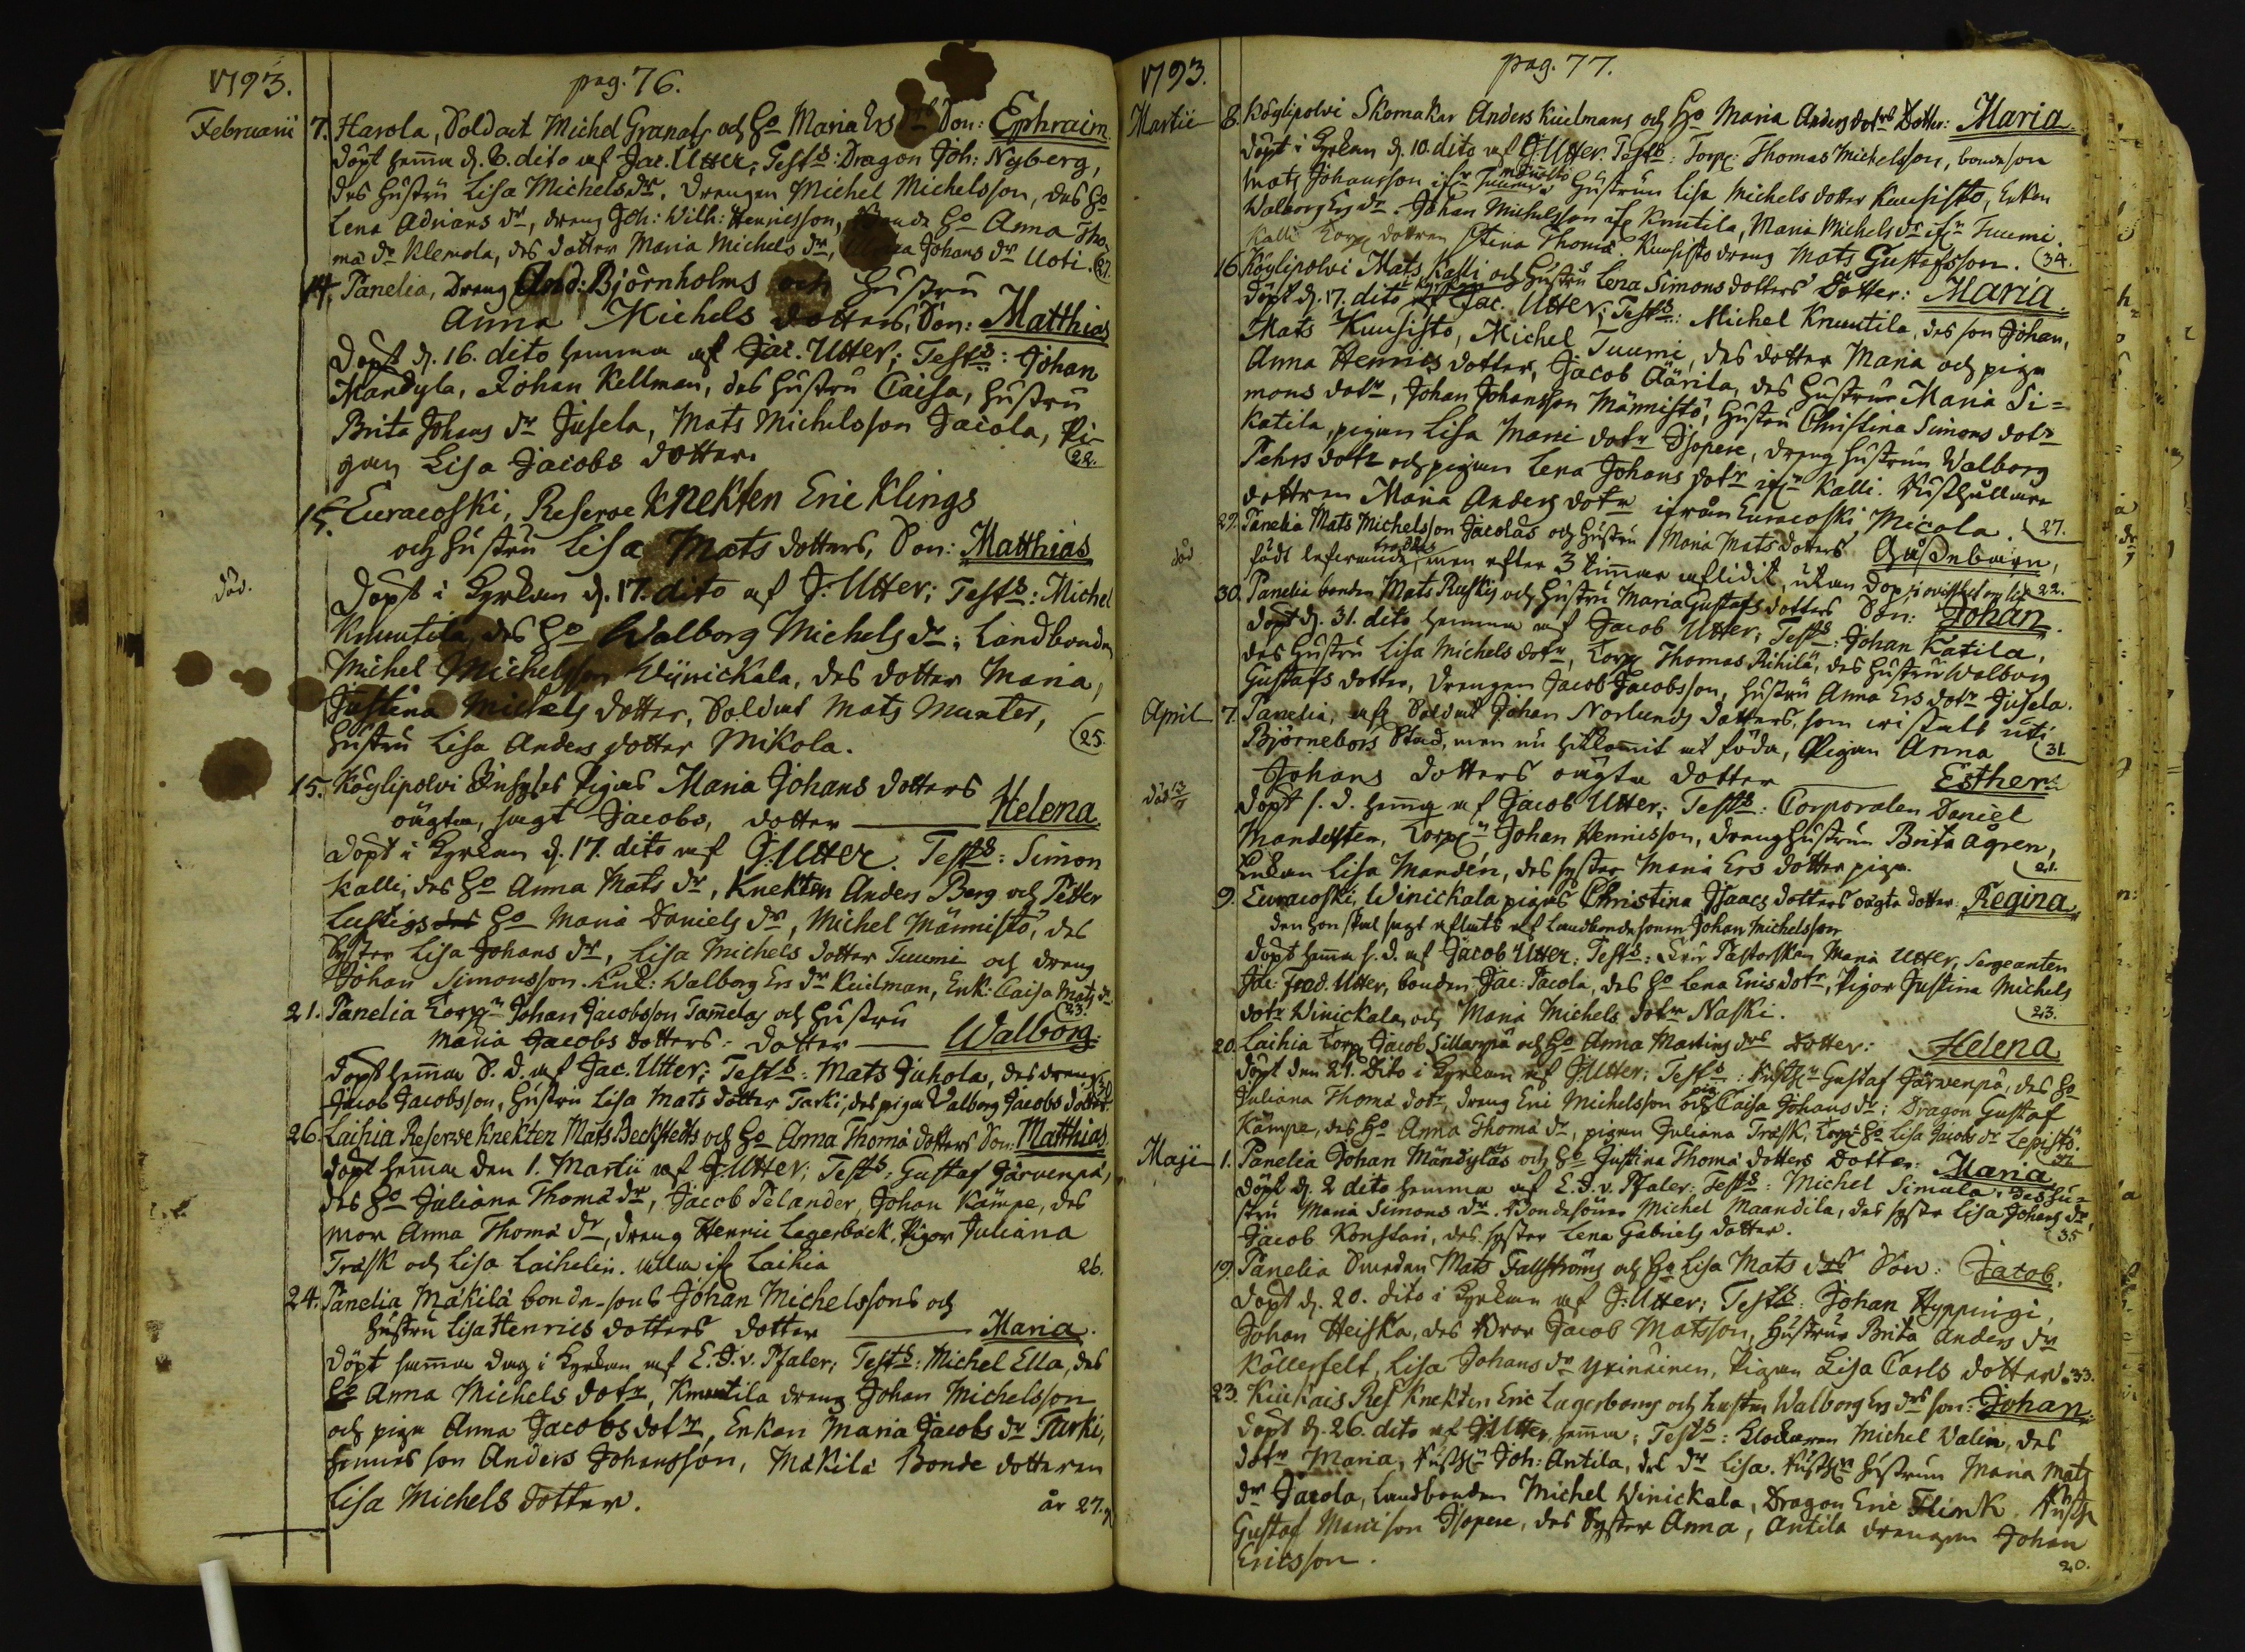 1793.
pag. 76.
Februarii 7. Harola, Soldat Michel Granats och Ho Maria Ers drs Son: Ephraim
döpt hema d. 8. dito af Jac. Utter; Tests: Dragon Joh: Nyberg,
des Hustru Lisa Michels dr. Drengen Michel Michelsson, des Ho
Lena Adrians dr, dreng Joh: Wilh: Henricsson, Ho Anna Tho-
mä dr Klemola, des dotter Maria Michels dr, Johans dr Uoti. 27.
14. Panelia, Dreng Björnholms och Hustru
Anna Michels dotters, Son: Matthias
döpt d. 16. dito hemma af Jac. Utter; Tests: Johan
Mandyla, Johan Kellman, des Hustru Caisa, Hustru
Brita Johans dr Jusela, Mats Michelsson Jacola, Pi-
gan Lisa Jacobs dotter. 22.
15. Euracoski, Reserve Knekten Eric Klings
och Hustru Lisa Mats dotters, Son: Matthias
död. döpt i Kyrkan d. 17. dito af J. Utter; Tests: Michel
Knuutila, des Ho Walborg Michels dr; Landbonden
Michel Michelsson Wijnickala, des dotter Maria,
Justina Michels dotter, Soldat Mats Munter,
Hustru Lisa Anders dotter Mikola. 25.
15. Köylipolvi Pigas Maria Johans dotters
oägta, sagt Jacobs, dotter Helena
döpt i Kyrkan d. 17. dito af J. Utter. Tests: Simon
Kalli, des Ho Anna Mats dr, Knekten Anders Berg och Petter
Lustigs Ho Maria Daniels dr, Michel Männistö, des
Syster Lisa Johans dr, Lisa Michels dotter Tuumi och dreng
Johan Simonsson. Enk: Walborg Ers dr Kuilman, Enk: Caisa Mats dr 23.
21. Panelia Torp: Johan Jacobsson Tamelas och Hustru
Maria Jacobs dotters dotter Walborg
döpt hema S. D. af Jac. Utter; Tests: Mats Juhola, des dreng 30
Jacob Jacobsson, Hustru Lisa Mats dotter Tarki, des piga Valborg Jacobs dotter.
26. Laihia Reserve Knekten Mats Beckstedts och Ho Anna Thomä dotters Son: Matthias
döpt hema den 1. Martii af J. Utter; Tests: Gustaf Järvenpä,
des Ho Juliana Thomä dr, Jacob Pelander, Johan Kämpe, des
mor Anna Thomä dr, dreng Henric Lagerbäck, Pigor Juliana
Träsk och Lisa Laihelin. alla ifr Laihia 26.
24. Panelia Mäkilä bonde-sons Johan Michelssons och
Hustru Lisa Henrics dotters dotter Maria.
döpt samma dag i Kyrkan af E. J. v. Pfaler; Tests: Michel Ella, des
Ho Anna Michels dotr, Knuutila dreng Johan Michelsson
och piga Anna Jacobs dotr, Enkan Maria Jacobs dr Tarki,
hennes son Anders Johansson, Mäkilä Bonde dotteren
Lisa Michels dotter. år 27.
1793.
pag. 77.
Martii 8. Köylipolvi Skomakar Anders Kuilmans och Ho Maria Anders dotrs Dotter: Maria
döpt i Kyrkan d. 10. dito af J. Utter. Tests: Torp: Thomas Michelsson, bondeson
Mats Johansson ifr Männistö Hustrun Lisa Michels dotter Kuusisto, Enkan
Walborg Ers dr. Johan Michelsson ifr Knutila, Maria Michels dr ifr Tuumi.
Kalli Torp dottren Stina Thomä. Kuusisto dreng Mats Gustafsson. 34.
16. Köylipolvi Mats Kalli och Hustru Lena Simons dotters Dotter: Maria
döpt d. 17. dito i Kyrkan af Jac. Utter; Tests: Michel Knuutila, des son Johan,
Mats Kuusisto, Michel Tuumi, des dotter Maria och piga
Anna Henrics dotter, Jacob Äärila, des Hustru Maria Si=
mons dotr, Johan Johansson Männistö, Hustru Christina Simons dotr
Katila, pigan Lisa Mani dotr Isopere, dreng Hustrun Walborg
Pehrs dotr och pigan Lena Johans dotr ifr Kalli. Rusthållare
dottren Maria Anders dotr ifrån Euracoski Micola. 27.
29. Panelia Mats Michelsson Jacolas och Hustru Maria Mats dotters Gåssebarn,
död födt lefwande, men efter 3 timar aflidit, utan dop 22.
30. Panelia bonden Mats Ruskis och Hustru Maria Gustafs dotters Son: Johan
döpt d. 31. dito hemma af Jacob Utter; Tests: Johan Katila,
des Hustru Lisa Michels dotr, Torp Thomas Rihilä, des Hustru Walborg
Gustafs dotter, Drengen Jacob Jacobsson, Hustru Anna Ers dotr Jusela. 31
April 7. Panelia, afl Soldat Johan Norlunds dotters, som wistats uti
Björneborg Stad, men nu hitkomit at föda, Pigan Anna
Johans dotters oägta dotter Esther
död 17/9 döpt s. d. hema af Jacob Utter; Tests: Corporalen Daniel
Mandelsten, Torp Johan Henricsson, dreng Hustrun Brita Ågren,
Enkan Lisa Mandén, des syster Maria Ers dotter piga. 21.
9. Euracoski, Winickala pigas Christina Isaacs dotters oägta dotter: Regina
den hon skal sagt aflats af Landbondesonen Johan Michelsson
döpt hema s. d. af Jacob Utter; Tests: Pastorskan Maria Utter, Sergeanten
Jac: Fred. Utter, bonden Jac: Pacola, des Ho Lena Erics dotr, Pigor Justina Michels
dotr Winickala, och Maria Michels dotr Naski. 23.
20. Laihia Torp Jacob Sillanpä och Ho Anna Martins drs Dotter: Helena
döpt den 21. Dito i Kyrkan af J. Utter; Tests: Rusth Gustaf Järvenpä, des Ho
Juliana Thomä dotr, dreng Eric Michelsson och pig Caisa Johans dr; Dragon Gustaf
Kämpe, des Ho Anna Thomä dr, pigan Juliana Träsk, Torp: Ho Lisa Jacobs dr Lepistö.
Maji 1. Panelia Johan Mändyläs och Ho Justina Thomä dotters Dotter: Maria
döpt d. 2 dito hemma af E. J. v. Pfaler: Tests: Michel Simula, des Hu=
stru Maria Simons dr. Bondesönen Michel Maandila, des syster Lisa Johans dr,
Jacob Konstari, des syster Lena Gabriels dotter. 35
19. Panelia Smeden Mats Fallströms och Ho Lisa Mats drs Son: Jacob.
döpt d. 20. dito i Kyrkan af J. Utter; Tests: Johan Hyppingi,
Johan Heiska, des Bror Jacob Matsson, Hustrur Brita Anders dr
Köllerfelt, Lisa Johans dr Pigan Lisa Carls dotter. 33.
23. Kiukais Res Knekten Eric Lagerborgs och hustru Walborg Ers drs son: Johan
döpt d. 26. dito af J. Utter, hema; Tests: Klockaren Michel Valin, des
dotr Maria, Rusth Joh: Antila, des dr Lisa. Rusth Hustrun Maria Mats
dr Jacola, Landbonden Michel Winickala, Dragon Eric Flink. Rusth
Gustaf Mani son Isopere, des Syster Anna, Antila drengen Johan
Ericsson. 20.